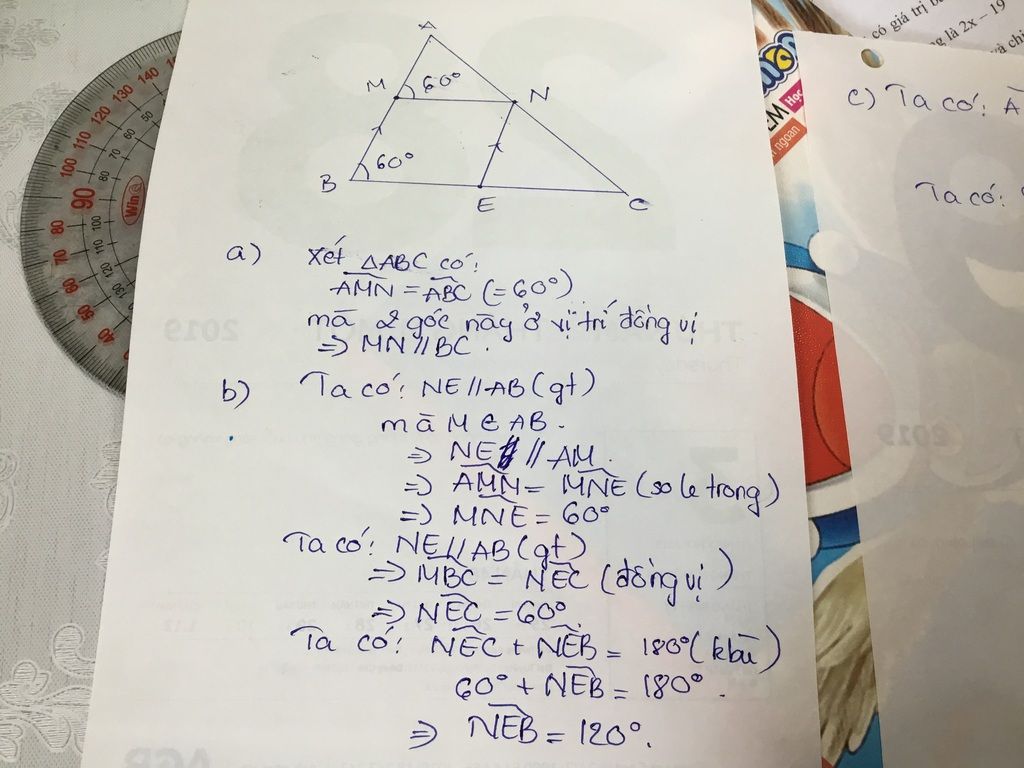 A
M
60°
N
B
60°
E
C
a) Xét △ABC có:
AMN = ABC (=60°)
mà 2 góc này ở vị trí đồng vị
=> MN // BC.
b) Ta có: NE // AB (gt)
mà M ∈ AB.
=> NE // AM.
=> AMN = MNE (so le trong)
=> MNE = 60°
Ta có: NE // AB (gt)
=> MBC = NEC (đồng vị)
=> NEC = 60°.
Ta có: NEC + NEB = 180° (kbù)
60° + NEB = 180°.
=> NEB = 120°.
c) Ta có: A
Ta có:
có giá trị
là 2x – 19
và chi
Học
ngoan
WinQ
2019
2019